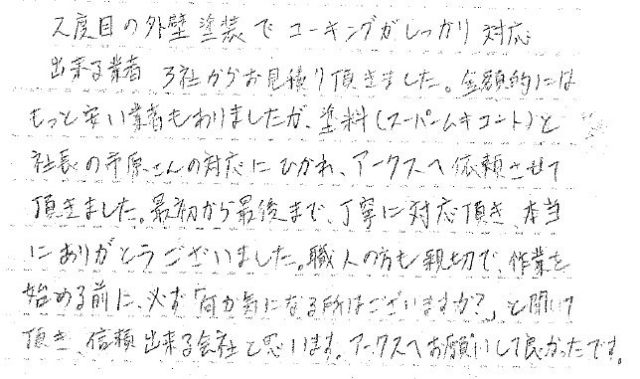 2度目の外壁塗装でコーキングがしっかり対応
出来る業者 3社からお見積り頂きました。金額的には
もっと安い業者もありましたが、塗料(スーパームキコート)と
社長の市原さんの対応にひかれ、アークスへ依頼させて
頂きました。最初から最後まで、丁寧に対応頂き、本当
にありがとうございました。職人の方も親切で、作業を
始める前に、必ず「何か気になる所はございますか?」と聞いて
頂き、信頼出来る会社と思います。アークスへお願いして良かったです。